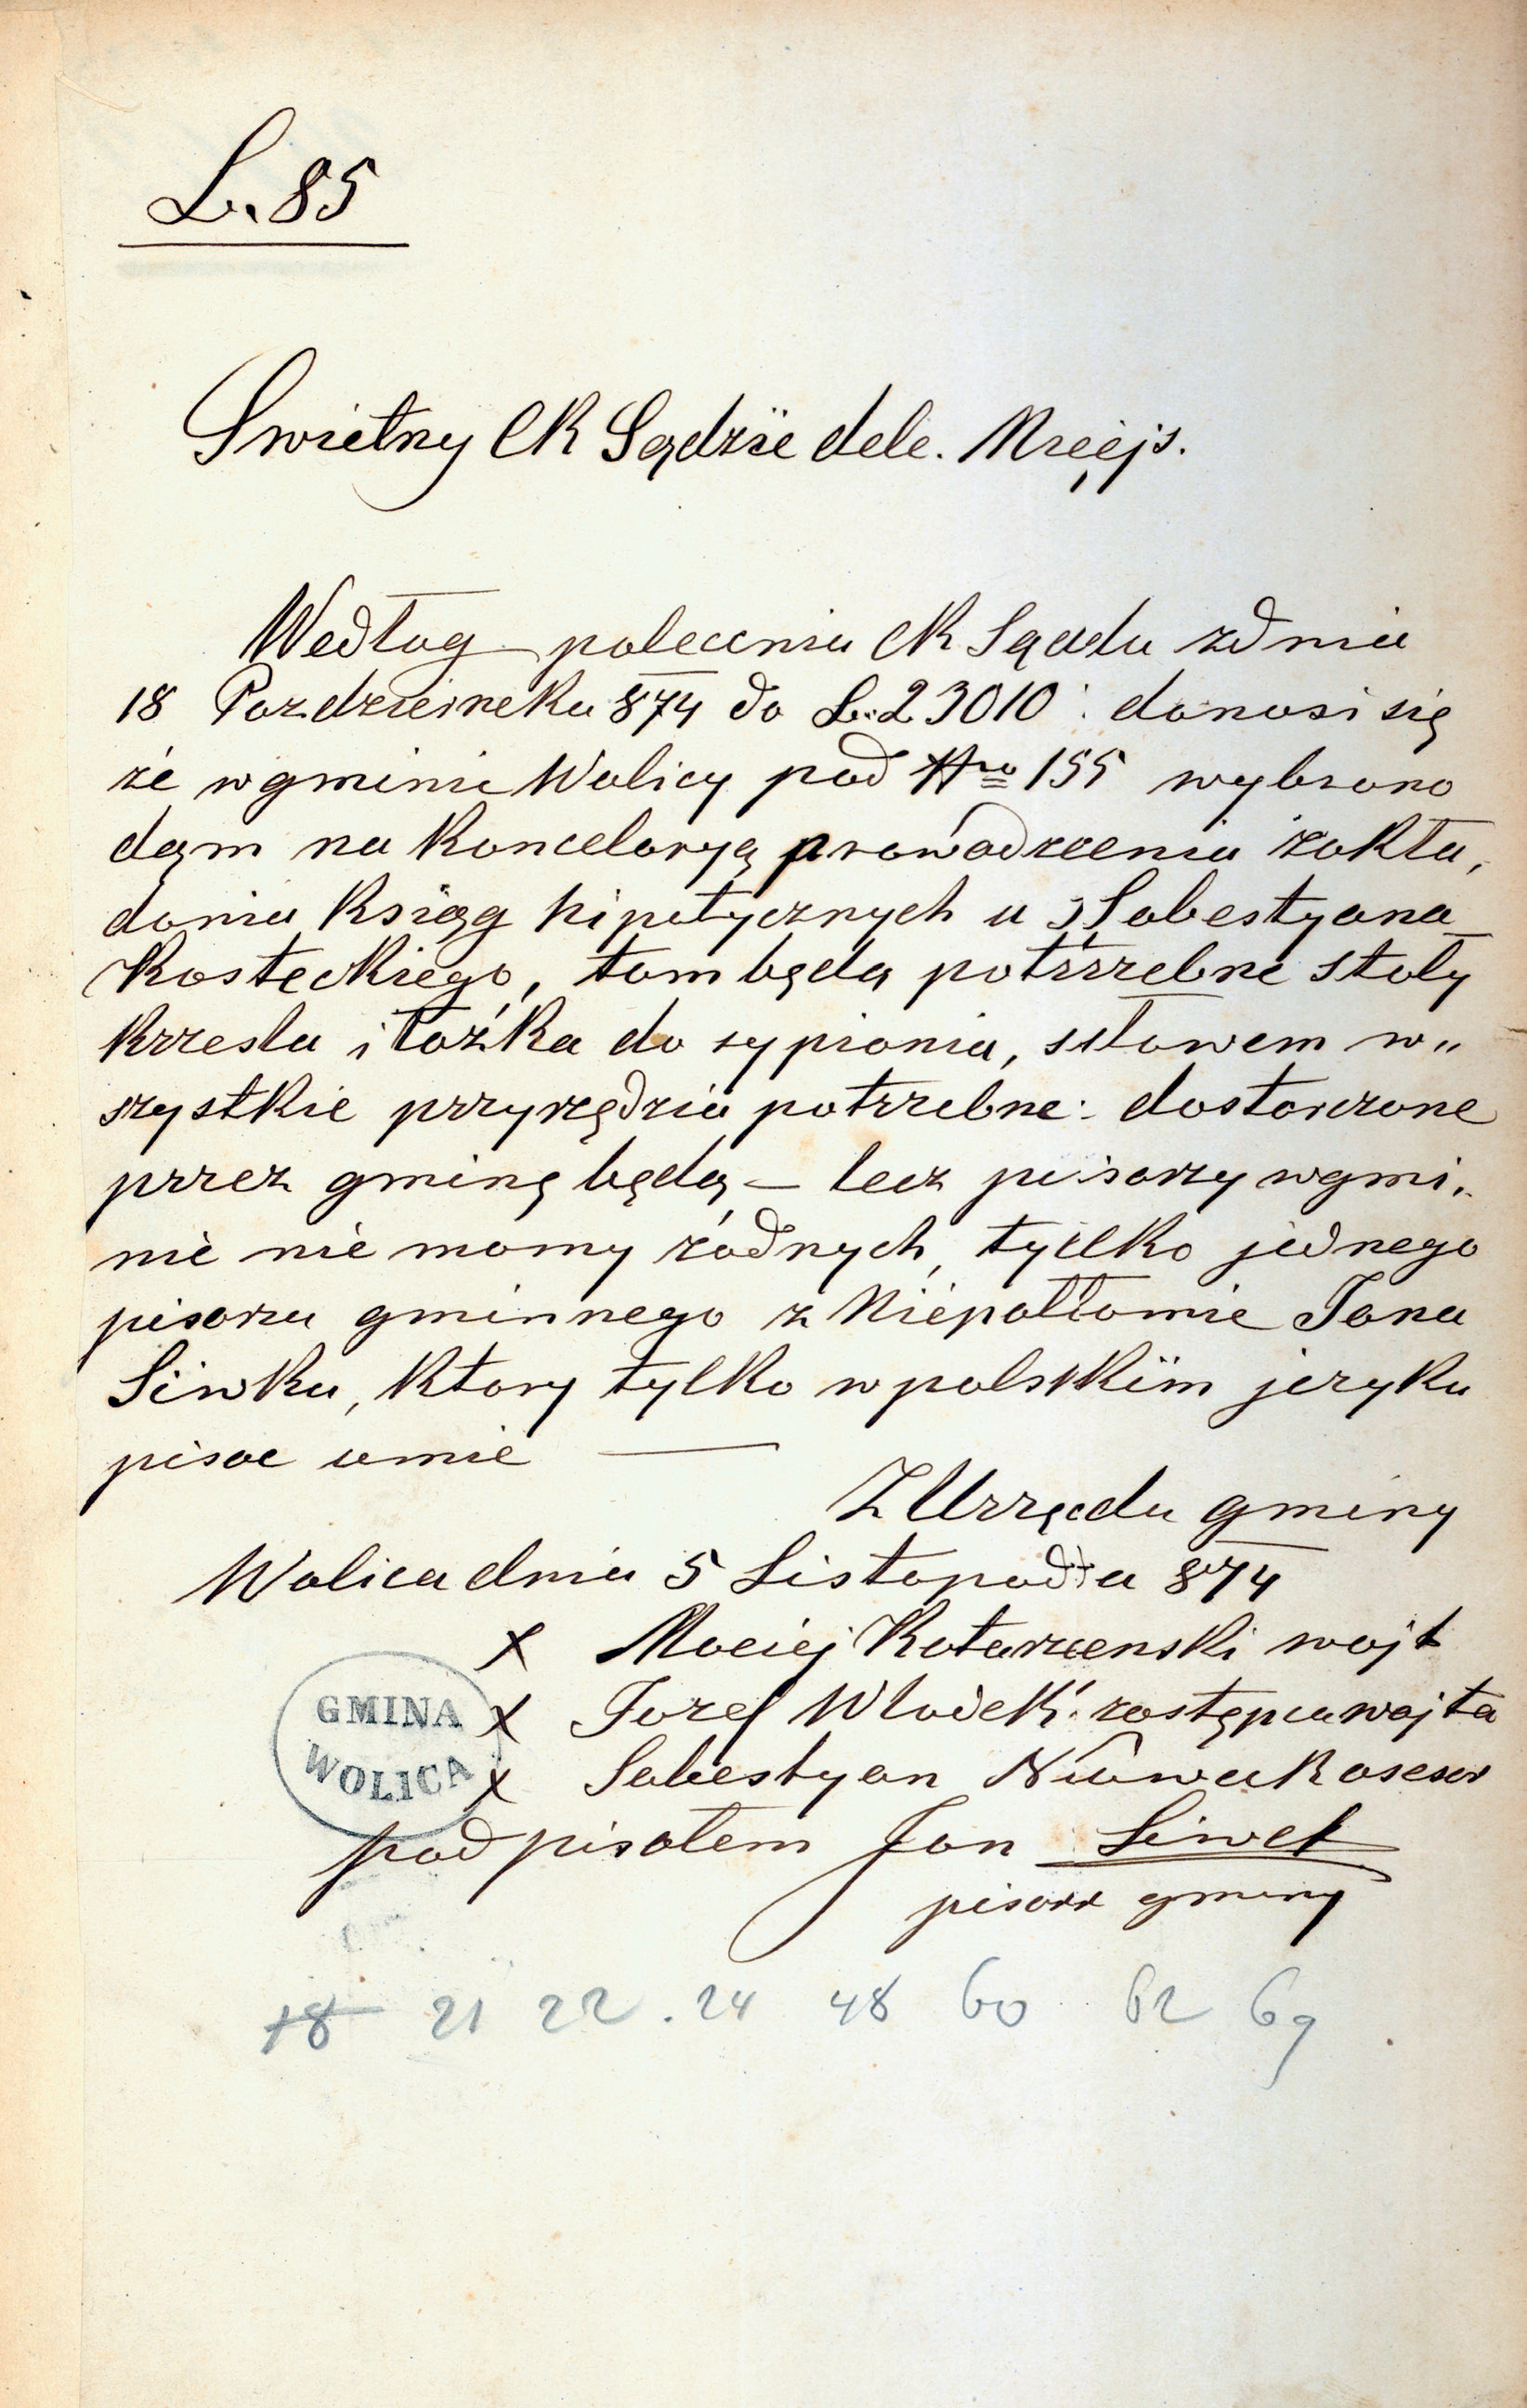 L. 85
Swietny CK Sądzie dele. Miejs.
Wedlug polecenia CK Sądu zdnia
18 Pozdziernika 874 do L. 23010 : donosi się
że wgminie Wolicy pod Nro 155 wybrano
dąm na Koncelaryą prowadzenia zakła,
dania Ksiąg hipotycznych u Sabestyana
Kosteckiego, tam będą potrzrebne stoły
krzesla i łożka do sypiania, słowem w„
szystkie przyrzędzia potrzebne: dostarczone
przez gminę będą – lecz pisarzy wgmi„
nie nie momy żodnych, tylko jednego
pisarza gminnego z Niepołłomic Jana
Siwka, ktory tylko wpolskim jezyku
pisac umie —
Z Urzędu gminy
Wolica dnia 5 Listopada 874
x Maciej Katarzenski wojt
x Jozef Wlodek zastępca wojta
x Sabestyan Nowak asesor
GMINA
WOLICA
podpisałem Jan Siwek
pisarz gminy
18 21 22 . 24 48 60 62 69